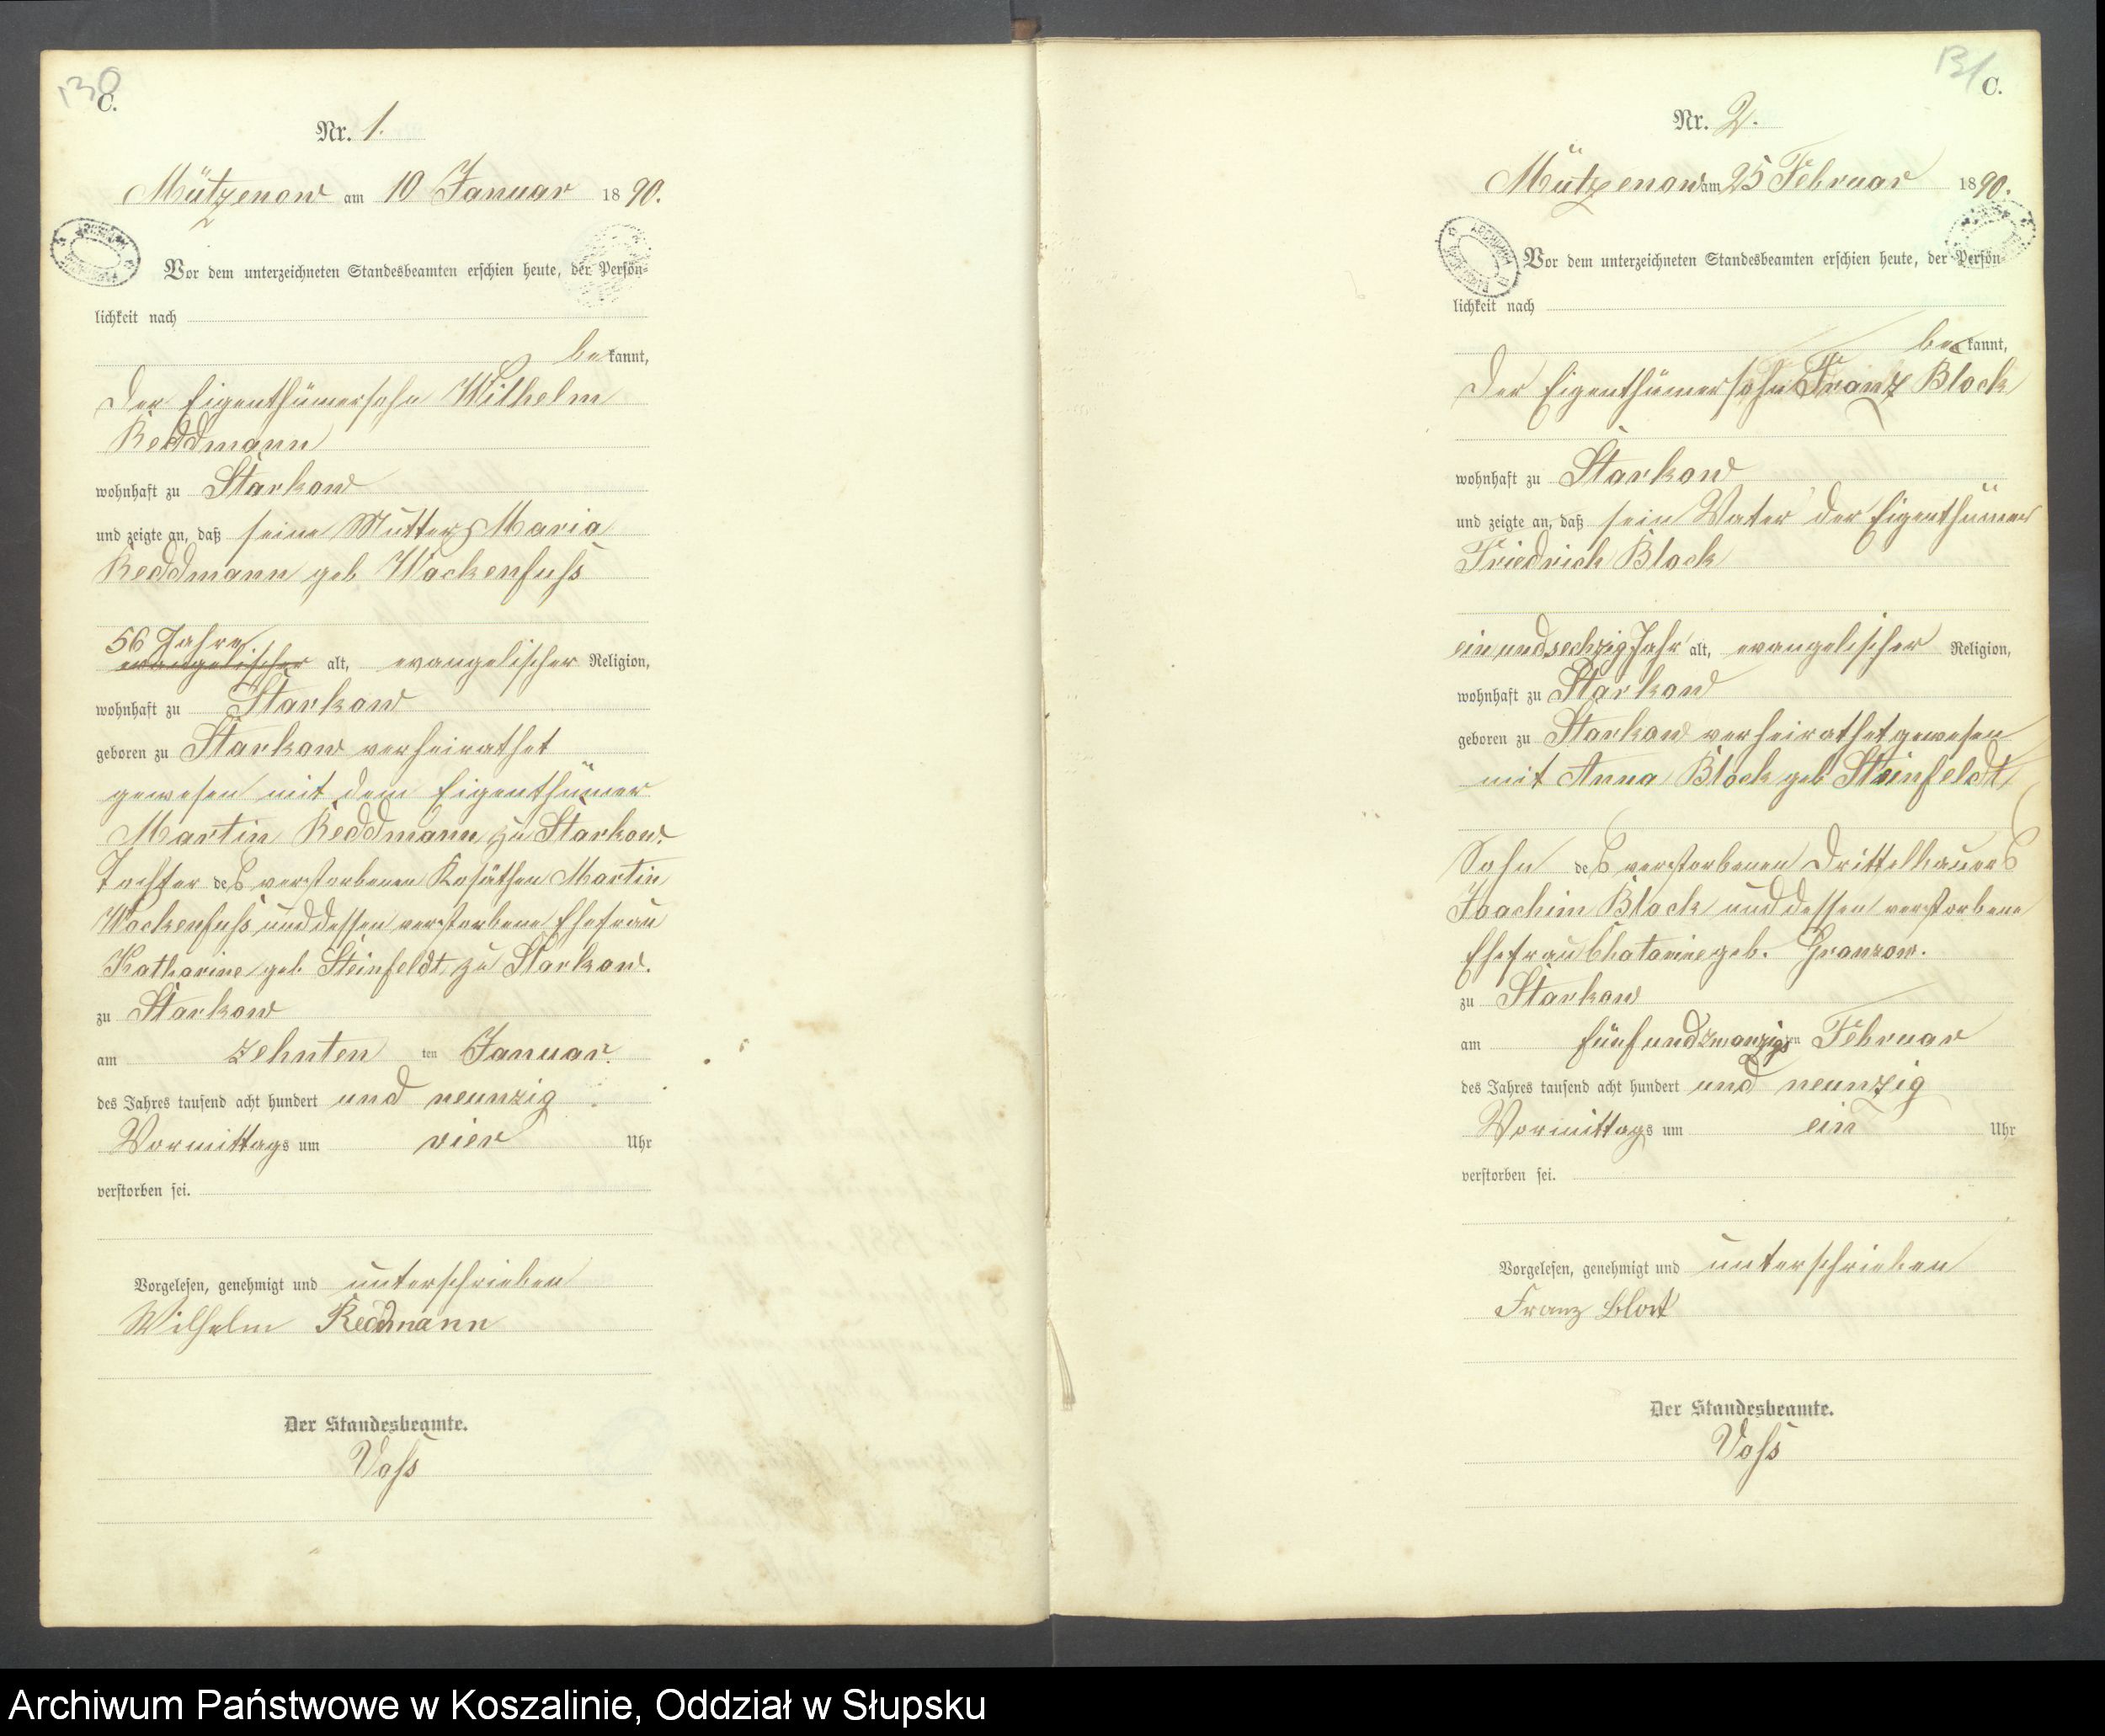 130
C.
Nr. 1.
Mützenow am 10 Januar 1890.
Vor dem unterzeichneten Standesbeamten erschien heute, der Persön-
lichkeit nach
bekannt,
der Eigenthümersohn Wilhelm
Reddmann
wohnhaft zu Starkow
und zeigte an, daß seine Mutter Maria
Reddmann geb Wockenfuss
56 Jahre
evangelischer alt, evangelischer Religion,
wohnhaft zu Starkow
geboren zu Starkow verheirathet
gewesen mit dem Eigenthümer
Martin Reddmann zu Starkow.
Tochter des verstorbenen Kosäthen Martin
Wockenfuss und dessen verstorbene Ehefrau
Katharine geb Steinfeldt zu Starkow.
zu Starkow
am zehnten ten Januar.
des Jahres tausend acht hundert und neunzig
Vormittags um vier Uhr
verstorben sei.
Vorgelesen, genehmigt und unterschrieben
Wilhelm Reddmann
Der Standesbeamte.
Voss
131
C.
Nr. 2.
Mützenow am 25 Februar 1890.
Vor dem unterzeichneten Standesbeamten erschien heute, der Persön-
lichkeit nach
bekannt,
der Eigenthümersohn Franz Block
wohnhaft zu Starkow
und zeigte an, daß sein Vater der Eigenthümer
Friedrich Block
einundsechzig Jahr alt, evangelischer Religion,
wohnhaft zu Starkow
geboren zu Starkow verheirathet gewesen
mit Anna Block geb Steinfeldt
Sohn des verstorbenen Drittelbauers
Joachim Block und dessen verstorbene
Ehefrau Chatarine geb. Granzow.
zu Starkow
am fünfundzwanzigsten Februar
des Jahres tausend acht hundert und neunzig
Vormittags um ein Uhr
verstorben sei.
Vorgelesen, genehmigt und unterschrieben
Franz Block
Der Standesbeamte.
Voss
Archiwum Państwowe w Koszalinie, Oddział w Słupsku